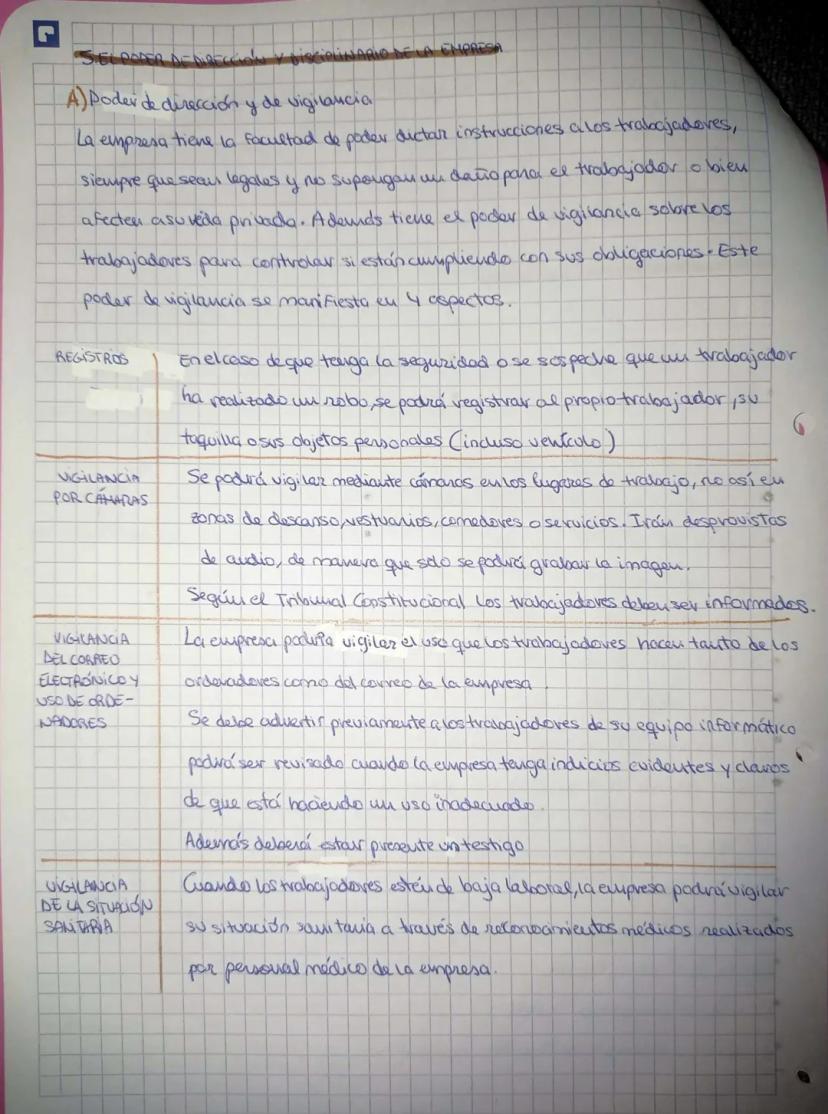 5. EL PODER DE DIRECCIÓN Y DISCIPLINARIO DE LA EMPRESA
A) Poder de dirección y de vigilancia
La empresa tiene la facultad de poder dictar instrucciones a los trabajadores,
siempre que sean legales y no supongan un daño para el trabajador o bien
afecten a su vida privada. Además tiene el poder de vigilancia sobre los
trabajadores para controlar si están cumpliendo con sus obligaciones. Este
poder de vigilancia se manifiesta en 4 aspectos.
REGISTROS
En el caso de que tenga la seguridad o se sospeche que un trabajador
ha realizado un robo, se podrá registrar al propio trabajador, su
taquilla o sus objetos personales (incluso vehículo)
VIGILANCIA
POR CÁMARAS
Se podrá vigilar mediante cámaras en los lugares de trabajo, no así en
zonas de descanso, vestuarios, comedores o servicios. Irán desprovistas
de audio, de manera que solo se podrá grabar la imagen.
Según el Tribunal Constitucional los trabajadores deben ser informados.
VIGILANCIA
DEL CORREO
ELECTRÓNICO Y
USO DE ORDE-
NADORES
La empresa podría vigilar el uso que los trabajadores hacen tanto de los
ordenadores como del correo de la empresa.
Se debe advertir previamente a los trabajadores de su equipo informático
podrá ser revisado cuando la empresa tenga indicios evidentes y claros
de que está haciendo un uso inadecuado.
Además deberá estar presente un testigo
VIGILANCIA
DE LA SITUACIÓN
SANITARIA
Cuando los trabajadores estén de baja laboral, la empresa podrá vigilar
su situación sanitaria a través de reconocimientos médicos realizados
por personal médico de la empresa.